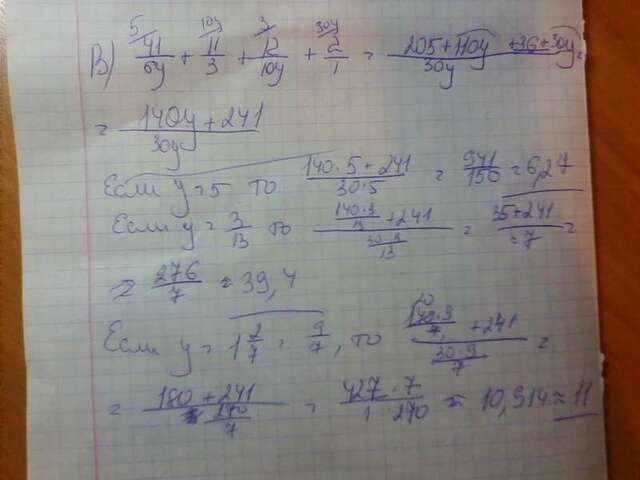 В) 41/6y + 11/3 + 12/10y + 2/1 = (205 + 110y + 36 + 30y)/30y =
= (140y + 241)/30y
Если y = 5 то (140 · 5 + 241)/(30 · 5) = 941/150 = 6,27
Если y = 3/13 то (140 · 3/13 + 241)/(30 · 3/13) = (35 + 241)/7 =
= 276/7 = 39,4
Если y = 1 2/7 = 9/7, то (140 · 9/7 + 241)/(30 · 9/7) =
= (180 + 241)/(270/7) = 427 · 7/1 · 270 = 10,914 ≈ 11